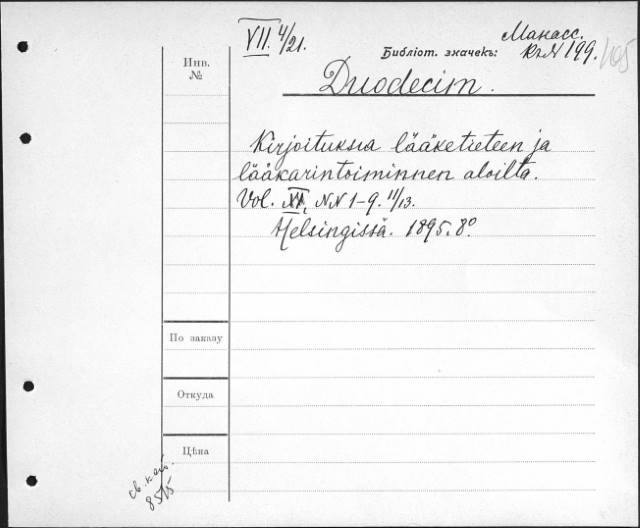 VII. 4/21.
Манасс.
Библіот. значекъ: Кг.N 199. 105
Инв.
№
Duodecim.
Kirjoituksia lääketieteen ja
lääkärintoiminnen aloilta.
Vol. XI, NN 1-9. 11/13.
Helsingissä. 1895. 8º
По заказу
Откуда
Цѣна
св. кат.
8515